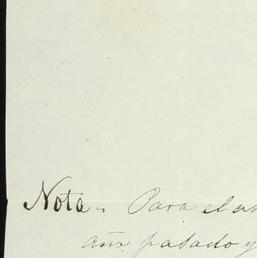 Nota. Para el
año pasado y